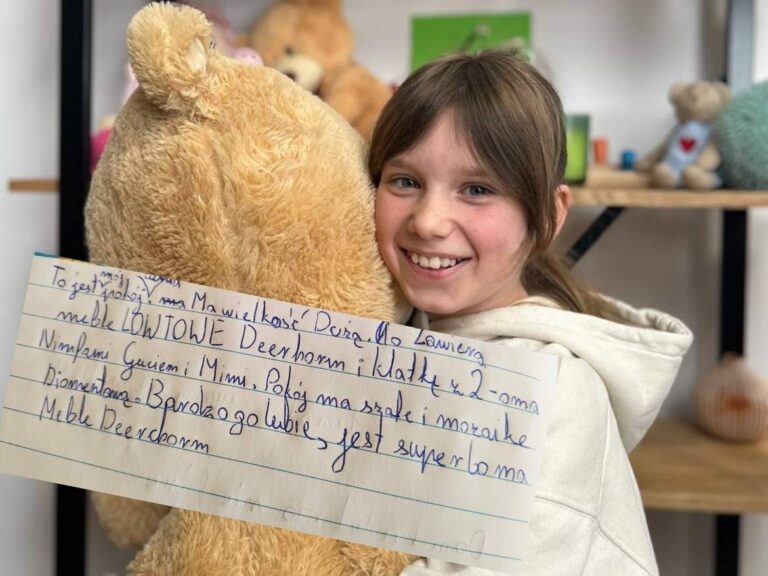 To jest mój pokój ma Ma wielkość Dużą. Mo Lawierą
meble LOWTOWE Deerhorm i klatkę z 2-oma
Nimfami Guciem i Mimi. Pokój ma szafe i mozaike
Diomentową. Bardzo go lubię, jest super bo ma
Meble Deerchorm